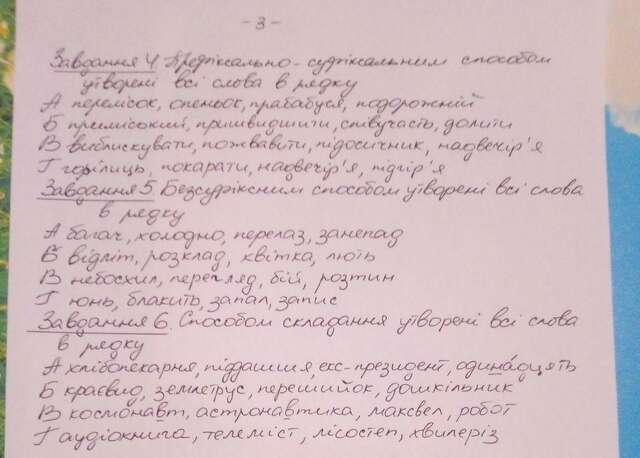 - 3 -
Завдання 4 Префіксально-суфіксальним способом
утворені всі слова в рядку
А перелісок, опеньок, прабабуся, подорожній
Б приміський, пришвидшити, співучасть, долити
В виблискувати, пожвавити, підосичник, надвечір'я
Г горілиць, покарати, надвечір'я, підгір'я
Завдання 5 Безсуфіксним способом утворені всі слова
в рядку
А багач, холодно, перелаз, занепад
Б відліт, розклад, квітка, лють
В небосхил, перегляд, бій, розтин
Г юнь, блакить, запал, запис
Завдання 6. Способом складання утворені всі слова
в рядку
А хлібопекарня, піддашшя, екс-президент, одина́дцять
Б краєвид, землетрус, перешийок, дошкільник
В космонавт, астронавтика, максвел, робот
Г аудіокнига, телеміст, лісостеп, хвилеріз